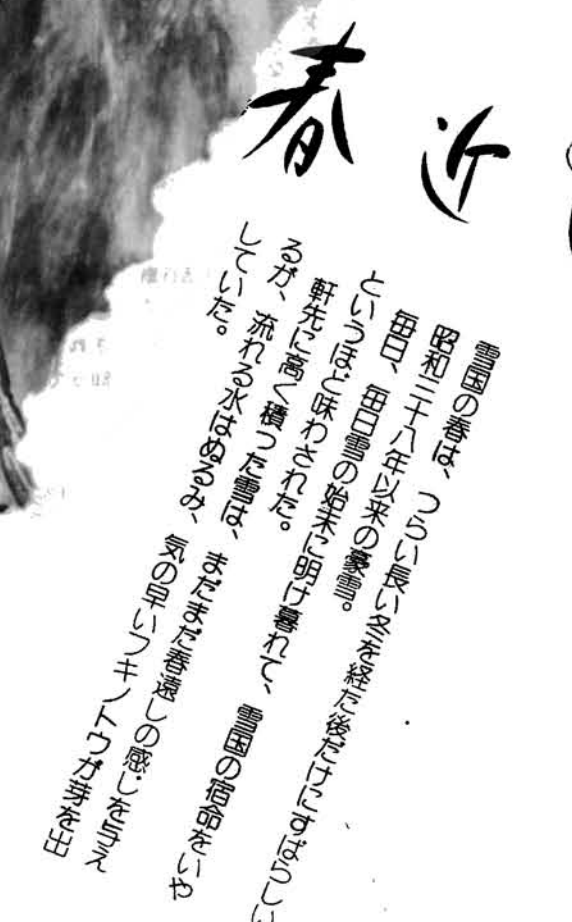 春近
雪国の春は、つらい長い冬を経た後だけにすばらしい
昭和三十八年以来の豪雪。
毎日、毎日雪の始末に明け暮れて、雪国の宿命をいや
というほど味わされた。
軒先に高く積った雪は、まだまだ春遠しの感じを与え
るが、流れる水はぬるみ、気の早いフキノトウが芽を出
していた。